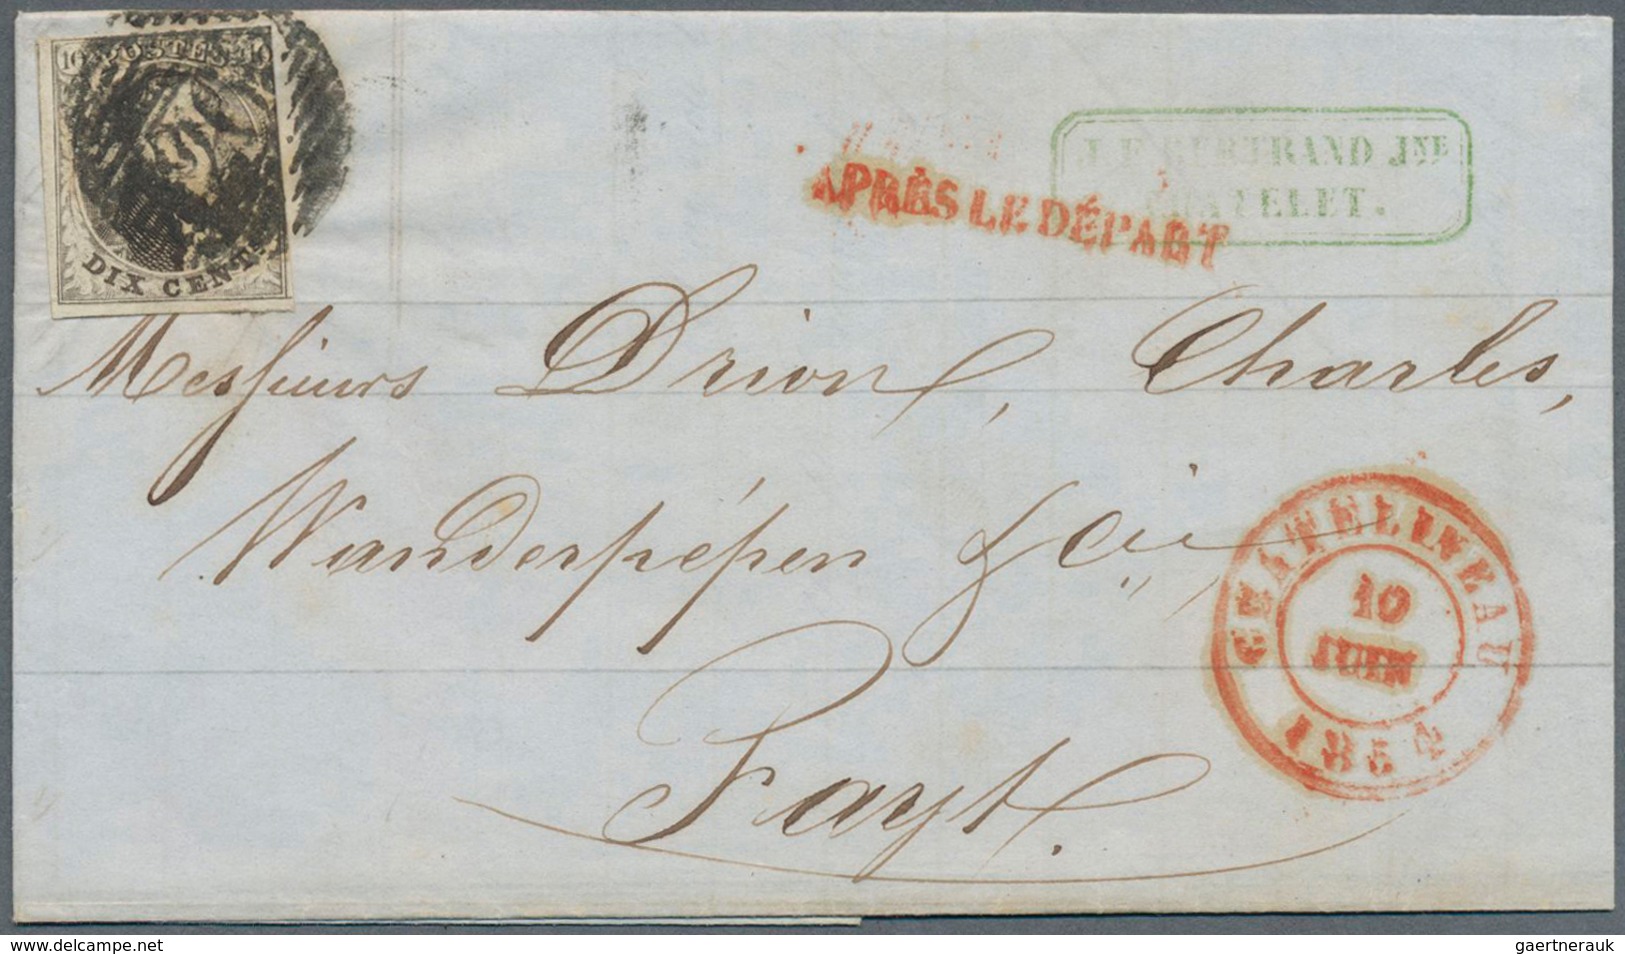 10 POSTES 10
DIX CENT
APRÈS LE DÉPART
J. F. BERTRAND JNE
CHATELET.
Messieurs Drion, Charles,
Wanderpépen & Cie
Fayt.
CHATELINEAU
10
JUIN
1854
www.delcampe.net
gaertnerauk